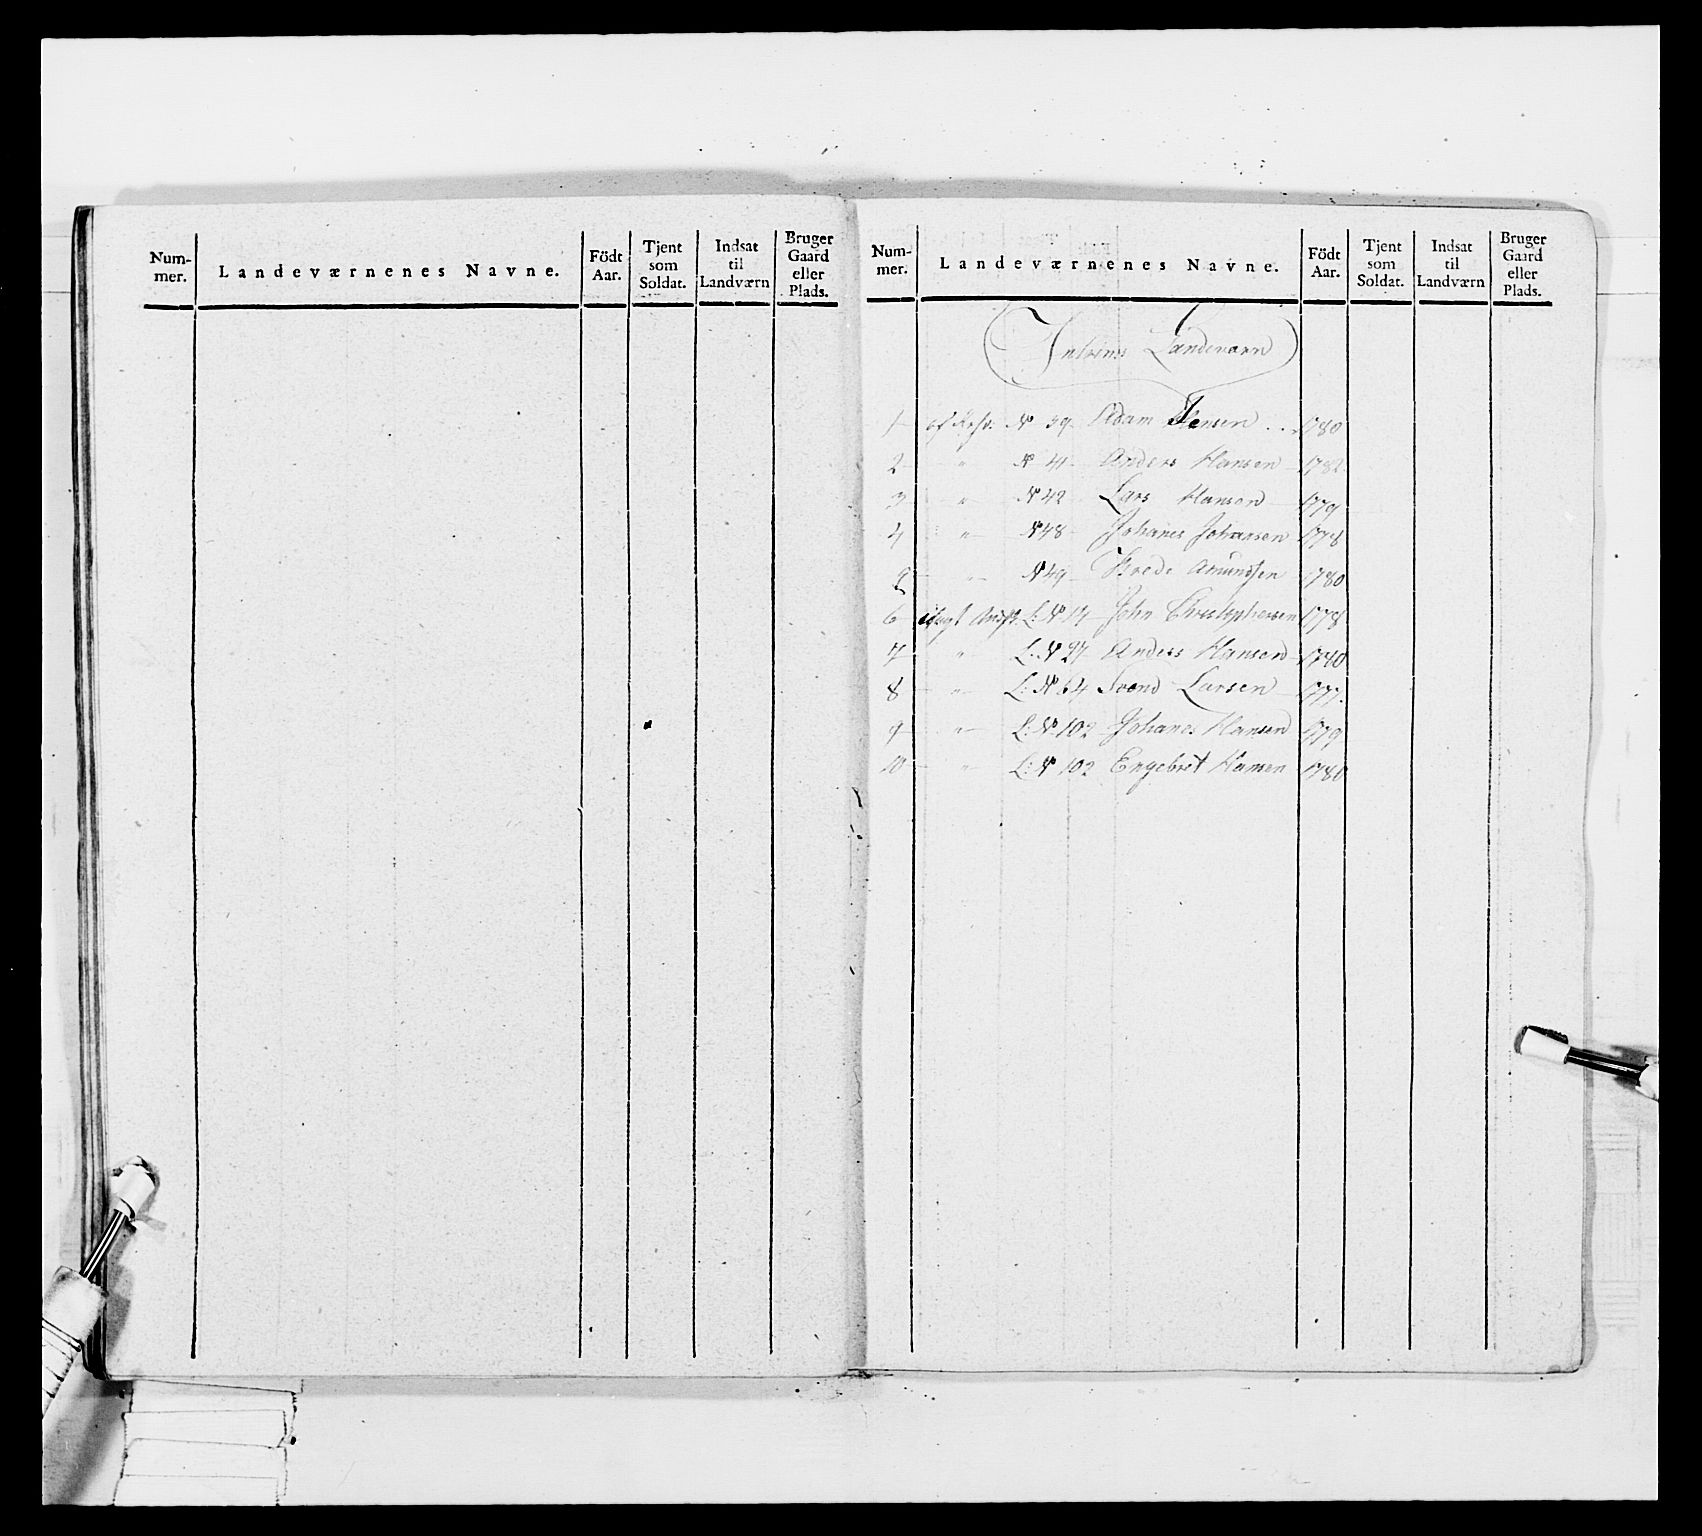 Num- Landeværnenes Navne. Födt Tjent Indsat Bruger
mer. Aar. som til Gaard
Soldat. Landværn eller
Plads.
Num- Landeværnenes Navne. Födt Tjent Indsat Bruger
mer. Aar. som til Gaard
Soldat. Landværn eller
Plads.
Landeværn
1 af № 39 Adam Hansen 1780
2 " № 41 Anders Hansen 1782
3 " № 42 Lars Hansen 1779
4 " № 48 Johanes Johansen 1778
№ 49 Amundsen 1780
6 L: № 14 John Christophersen 1778
7 " L: № 27 Anders Hansen 1780
8 " L: № 64 Svend Larsen 1777.
9 " L: № 102 Johanes Hansen 1779
10 " L: № 102 Engebret Hansen 1780